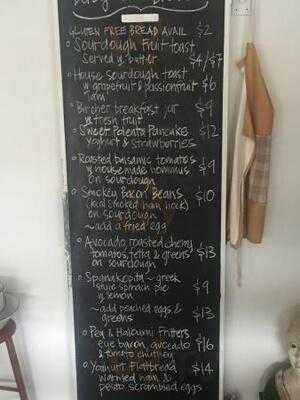 GLUTEN FREE BREAD AVAIL $2
• Sourdough Fruit toast
Served w butter $4/$7
• House sourdough toast
w grapefruit & passionfruit $6
Jam
• Bircher breakfast jar $9
w fresh fruit
• Sweet Polenta Pancake $12
Yoghurt & strawberries
• Roasted balsamic tomatoes
w housemade hommus $9
on sourdough
• Smokey Bacon Beans $10
(local smoked ham hock)
on sourdough
~ add a fried egg
• Avocado, roasted cherry
tomatoes, fetta & greens $13
on sourdough
• Spanakopita ~ greek
style spinach pie $9
w lemon
~ add poached eggs & $13
greens
• Pea & Haloumi Fritters
eye bacon, avocado $16
& tomato chutney
• Yoghurt Flatbread $14
warmed ham &
pesto scrambled eggs